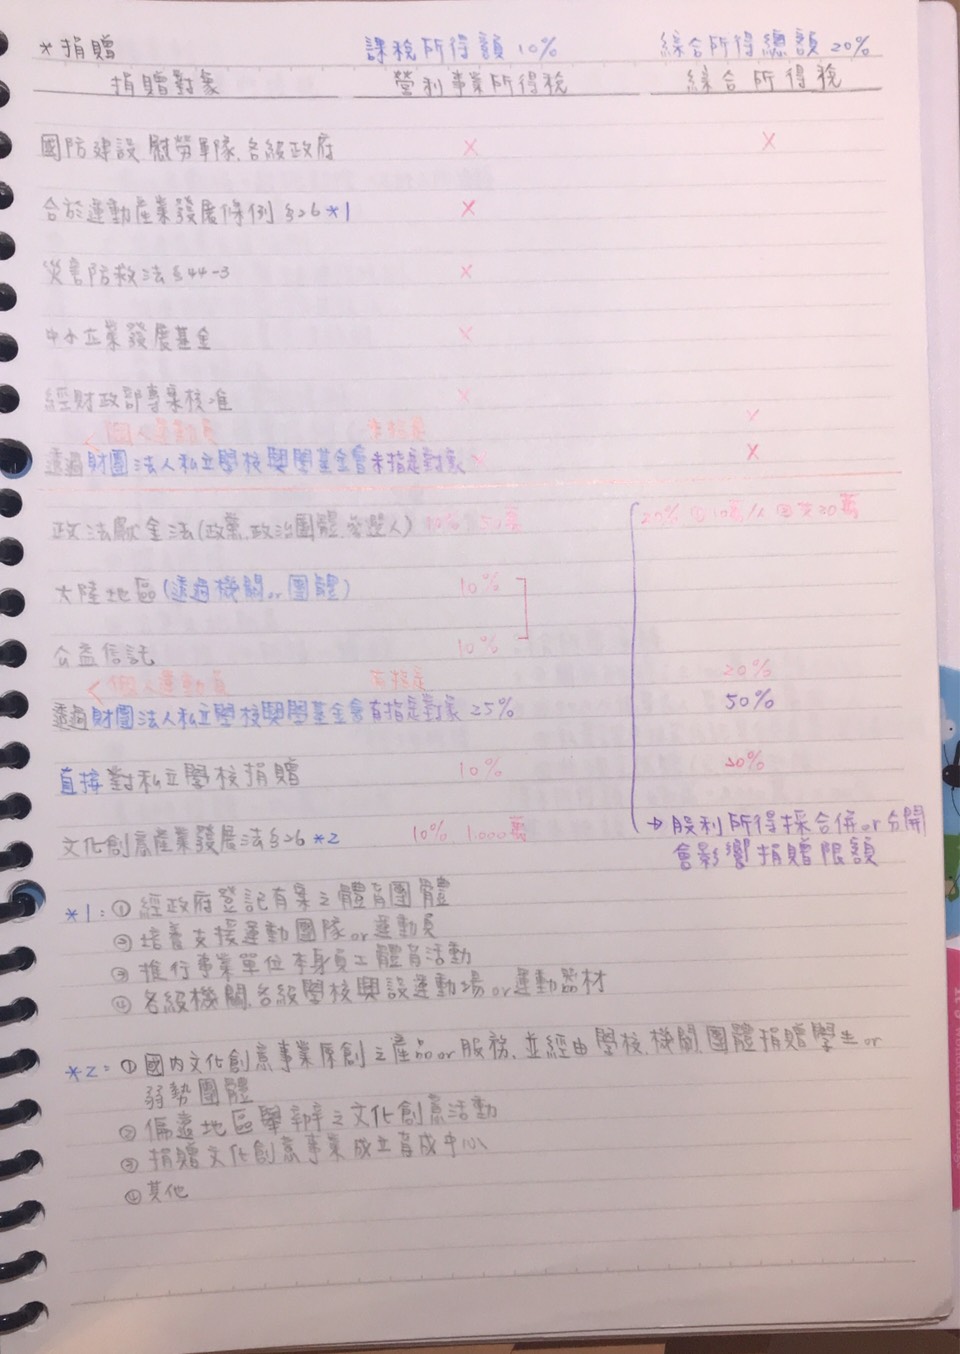 *捐贈 課稅所得額 10% 綜合所得總額 20%
捐贈對象 營利事業所得稅 綜合所得稅
國防建設、慰勞軍隊、各級政府 × ×
合於運動產業發展條例 §26 *1 ×
災害防救法 §44-3 ×
中小企業發展基金 ×
經財政部專案核准 ×
<個人運動員 未指定 ×
透過財團法人私立學校興學基金會未指定對象 × ×
政治獻金法(政黨、政治團體、參選人) 10% 50萬 20% ①10萬/人 ②共20萬
大陸地區(透過機關or團體) 10%
公益信託 10%
<個人運動員 有指定 20%
透過財團法人私立學校興學基金會有指定對象 25% 50%
直接對私立學校捐贈 10% 20%
文化創意產業發展法 §26 *2 10% 1,000萬 →股利所得採合併or分開
會影響捐贈限額
*1:①經政府登記有案之體育團體
②培養支援運動團隊or運動員
③推行事業單位本身員工體育活動
④各級機關、各級學校興設運動場or運動器材
*2:①國內文化創意事業原創之產品or服務,並經由學校、機關、團體捐贈學生or
弱勢團體
②偏遠地區舉辦之文化創意活動
③捐贈文化創意事業成立育成中心
④其他